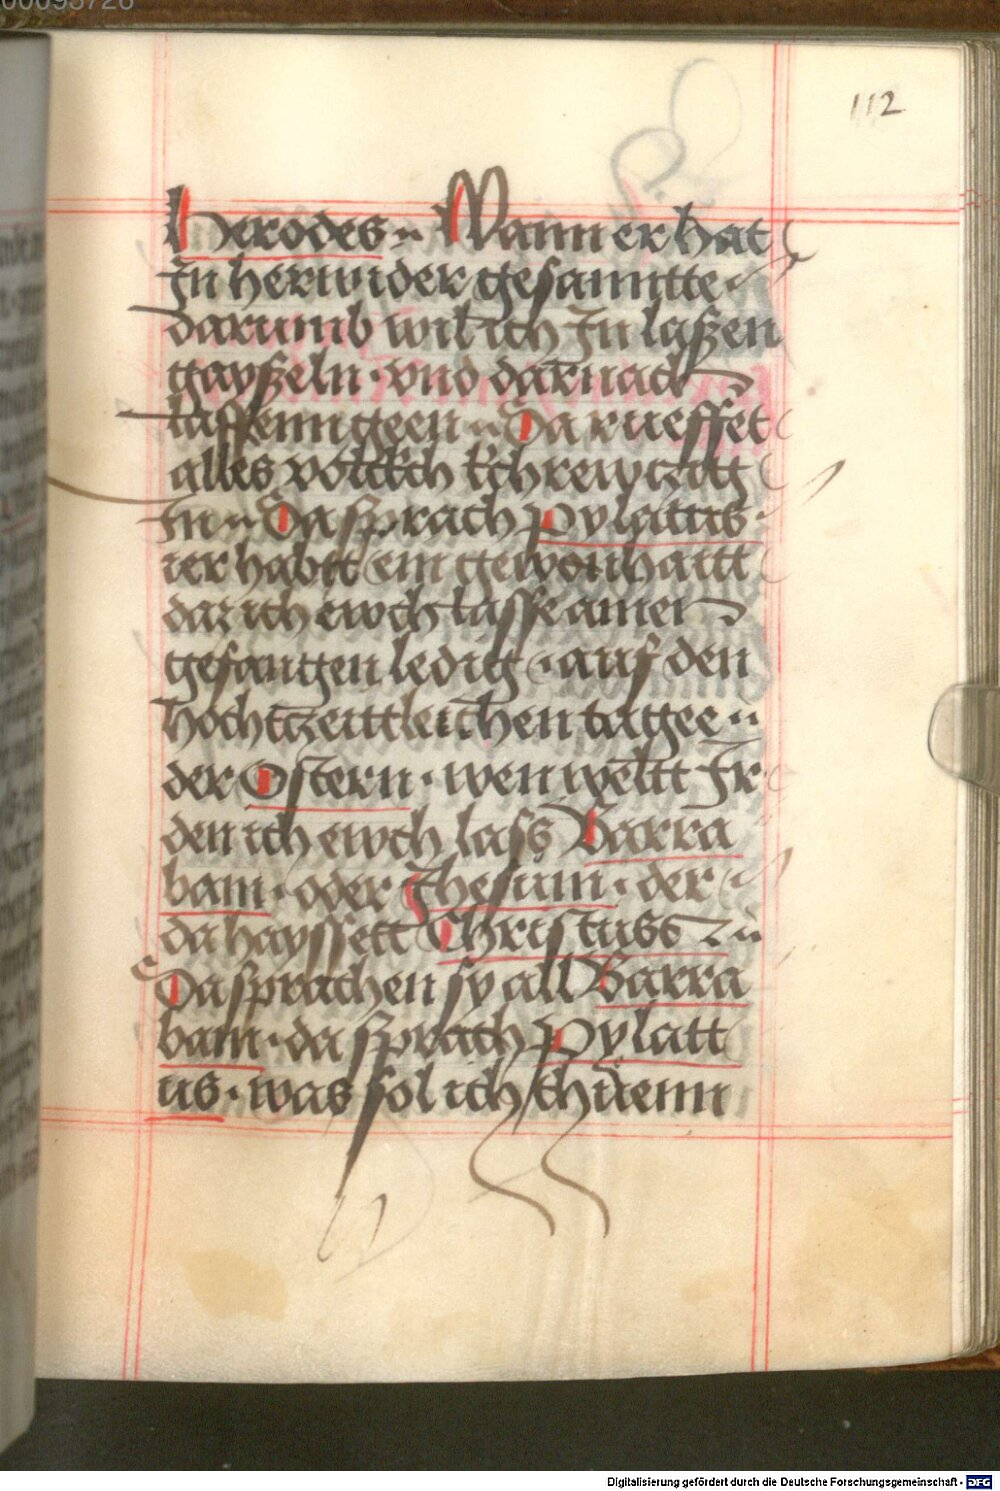 00095726
112
Herodes Wann er hat
In herwider gesanntte
darumb wil ich In laßen
gayßeln · vnd darnach
lassenn geen Da rueffet
alles volckch kchrewtzig
In Da sprach Pylatus
ier habtt ein gewonhaitt
daz ich ewch lasse ainen
gefangen ledig · auf den
hochtzeittleichen tagee
der Ostern · wen weltt Ir
den ich ewch lass Barra
bam · oder Jhesum · der
da hayssett Christuss
Da sprachen sy all Barra
bam · da sprach Pylatt
us · was sol ich thuenn
Digitalisierung gefördert durch die Deutsche Forschungsgemeinschaft - DFG